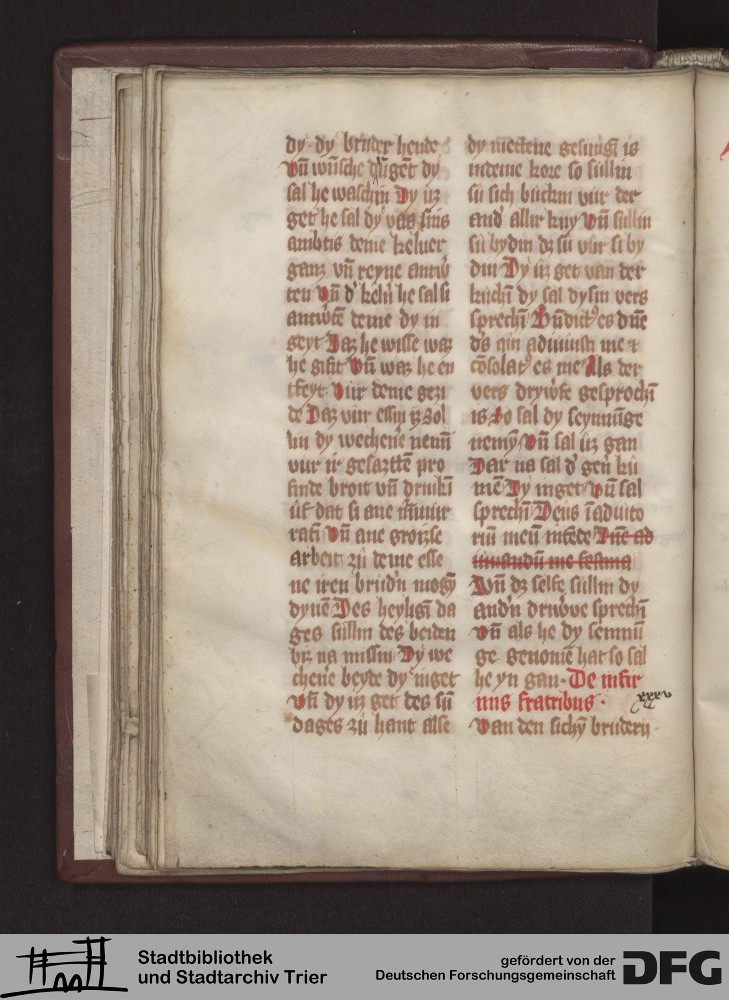 dy · dy brůder hende
vn̄ wu̇sche tu̇gēt dy
sal he waschin Dy vz
get he sal dy vas sins
ambtis deme kelner
ganz vn̄ reyne antw̕
ten vn̄ d̕ keln̕ he sal si
antw̕tē deme dy in
geyt Daz he wisse waz
he gibit vn̄ waz he en
tfeyt · vur deme gezi
de Daz vur essin iz sol
lin dy wechen̕e nemē
vur ir gesaztē pro
finde broit vn̄ drinkī
vf dat si ane murmur
ratī vn̄ ane groizse
arbeit zů deme esse
ne iren brůd̕n mogȳ
dynē Des heyligī da
ges sullin des beiden
biz na missin Dy we
chen̕e beyde dy inget
vn̄ dy vz get des sū
dages zů hant alse
dy mettene gesungī is
indeme kore so sullin
sů sich buckin vur der
and̕ allir kny vn̄ sullin
sů bydin dz sů vur si by
din Dy vz get van der
kuchī dy sal dysin vers
sprechī Bn̄dict᷒ es dn̄e
d̕s qui adiuuisti me ⁊
cōsolat᷒ es me Als der
vers drywerfe gesprochī
is So sal dy seynunge
nemȳ vn̄ sal vz gan
Dar na sal d̕ gen̕ ku
mē Dy inget vn̄ sal
sprechī Deus ī adiuto
riū meū intēde Dn̄e ad
iuuandū me festina
Vn̄ dz selbe sullin dy
and̕n druwe sprechī
vn̄ als he dy seinnū
ge genomē hat so sal
he yn gan · De infir
mis fratribus ·
xxxv
van den sichȳ brudern ·
Stadtbibliothek
und Stadtarchiv Trier
gefördert von der
Deutschen Forschungsgemeinschaft
DFG